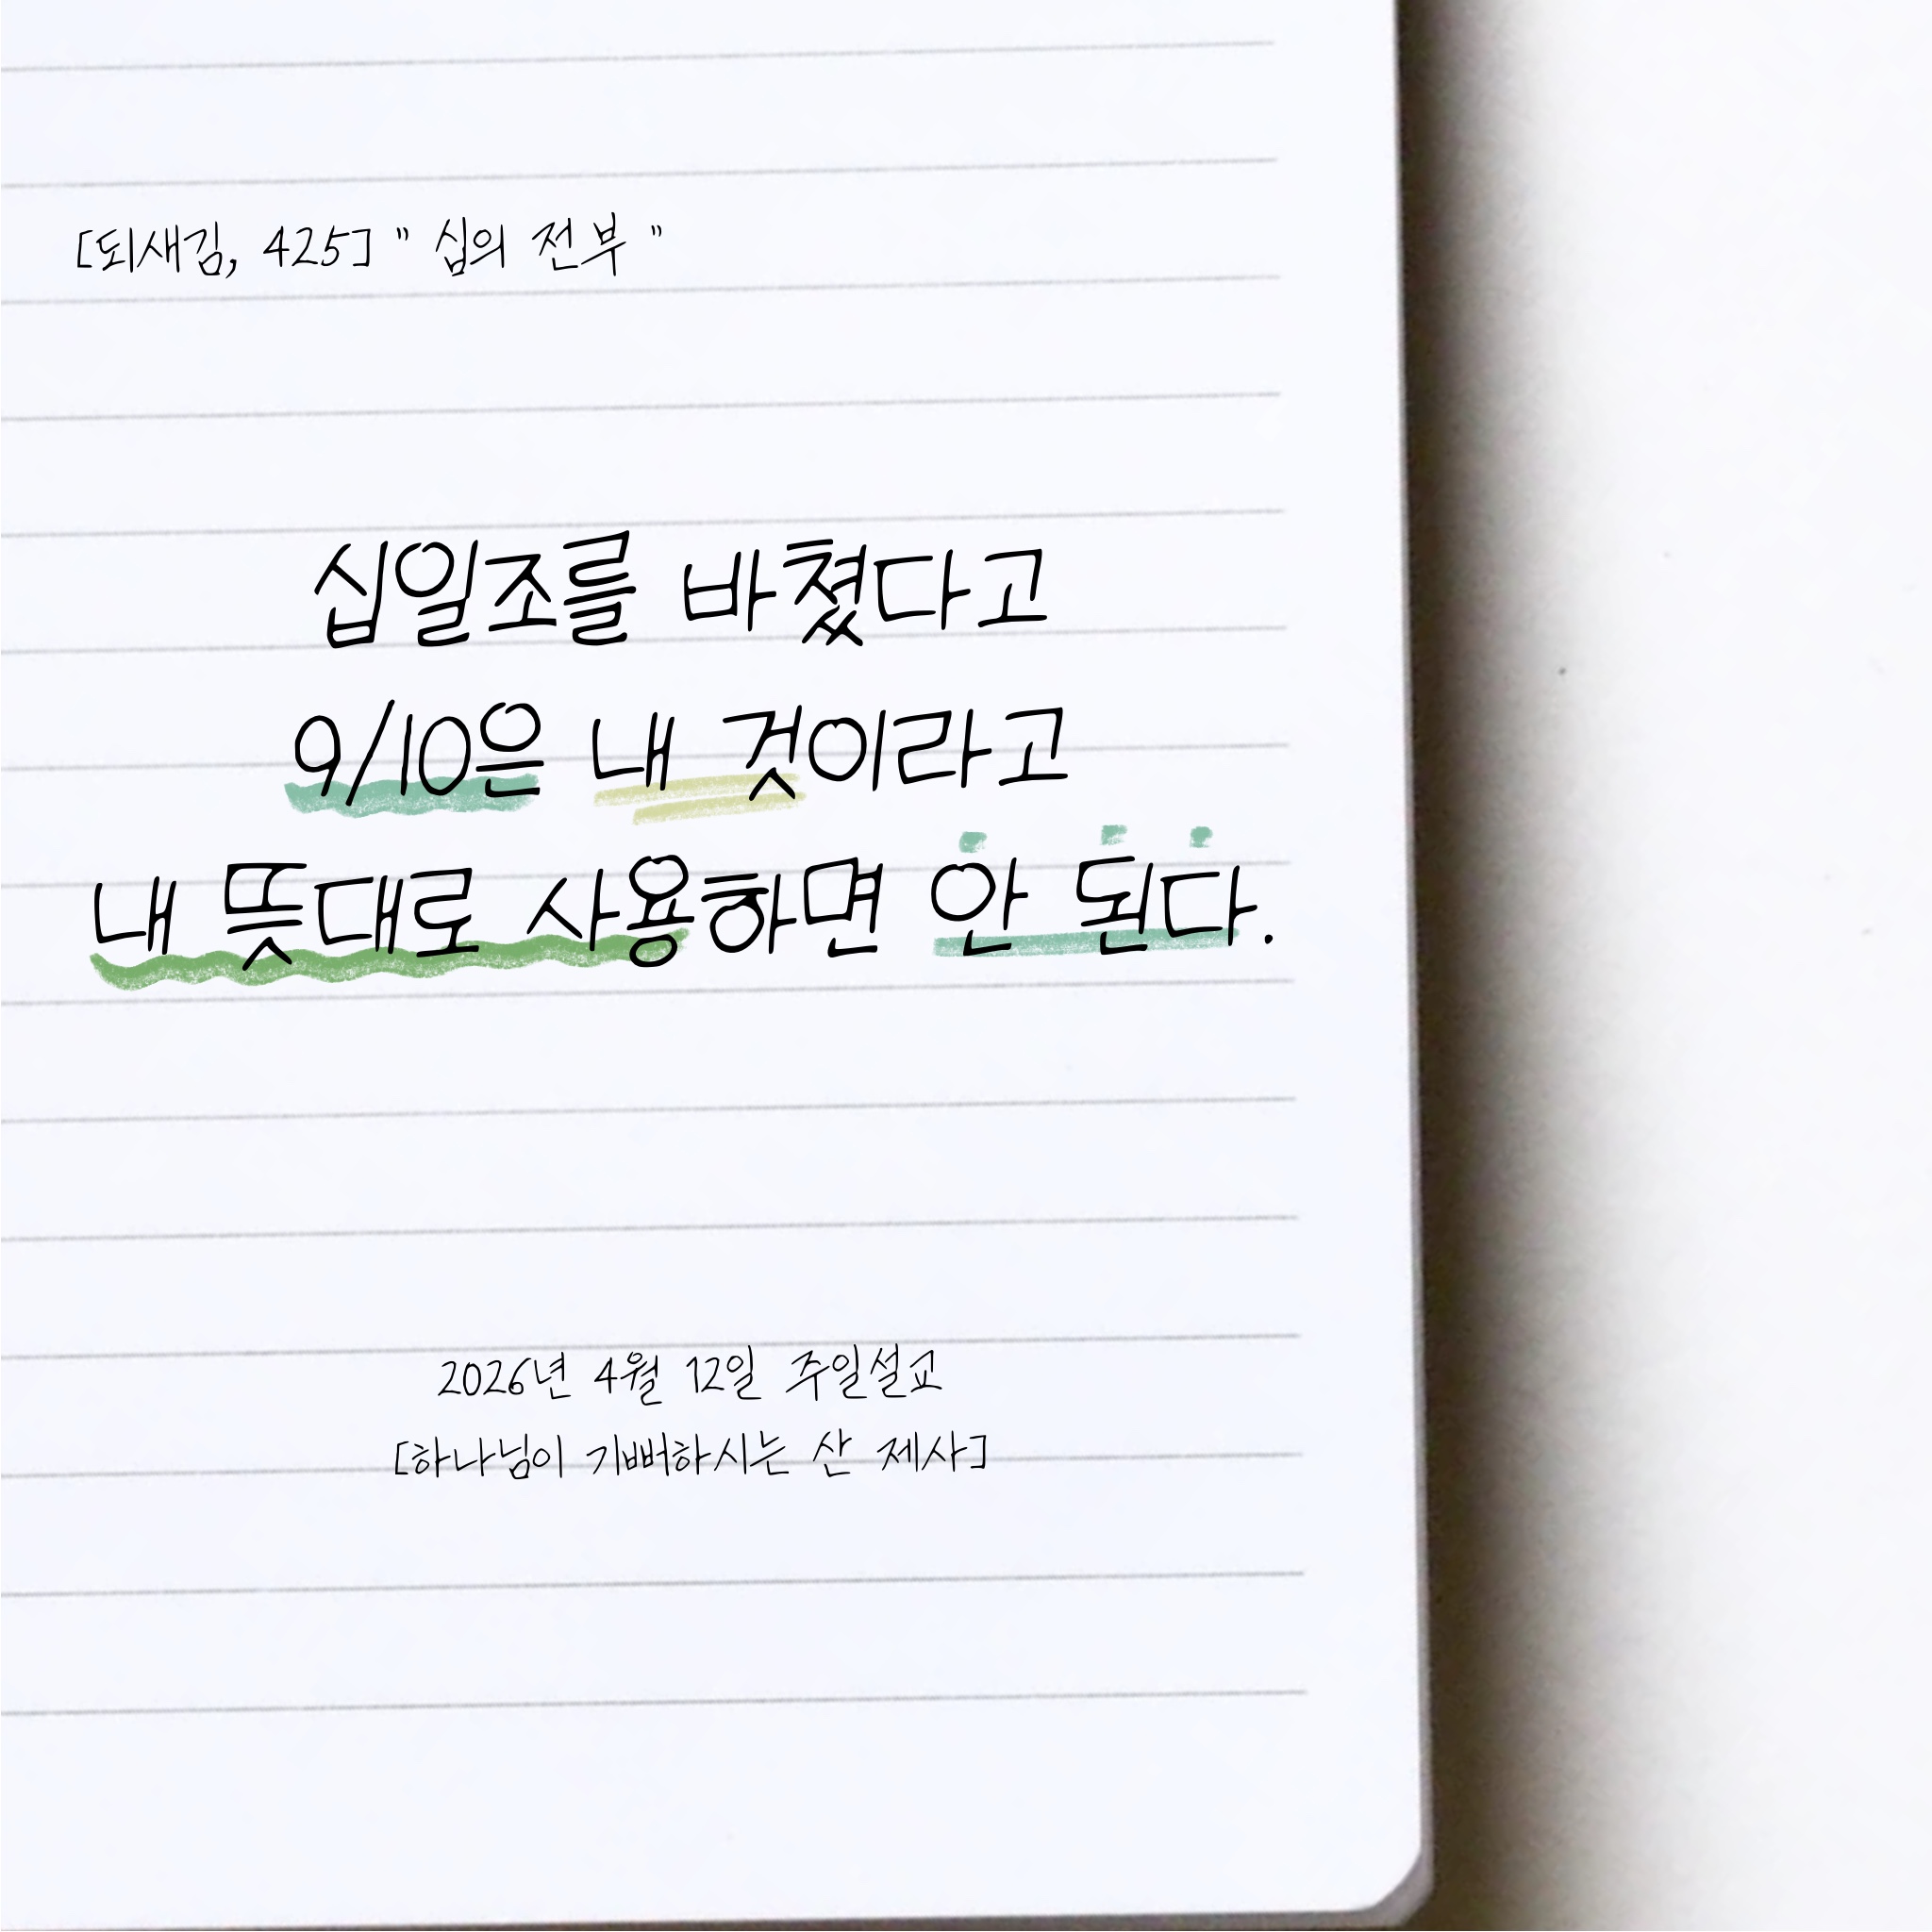 [되새김, 425] " 십의 전부 "
십일조를 바쳤다고
9/10은 내 것이라고
내 뜻대로 사용하면 안 된다.
2026년 4월 12일 주일설교
[하나님이 기뻐하시는 산 제사]